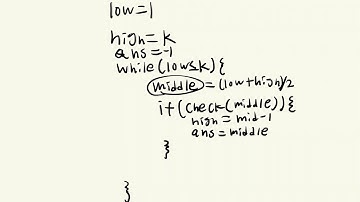 low=1
high=k
ans=-1
while(low≤k){
middle=(low+high)/2
if(check(middle)){
high=mid-1
ans=middle
}
}